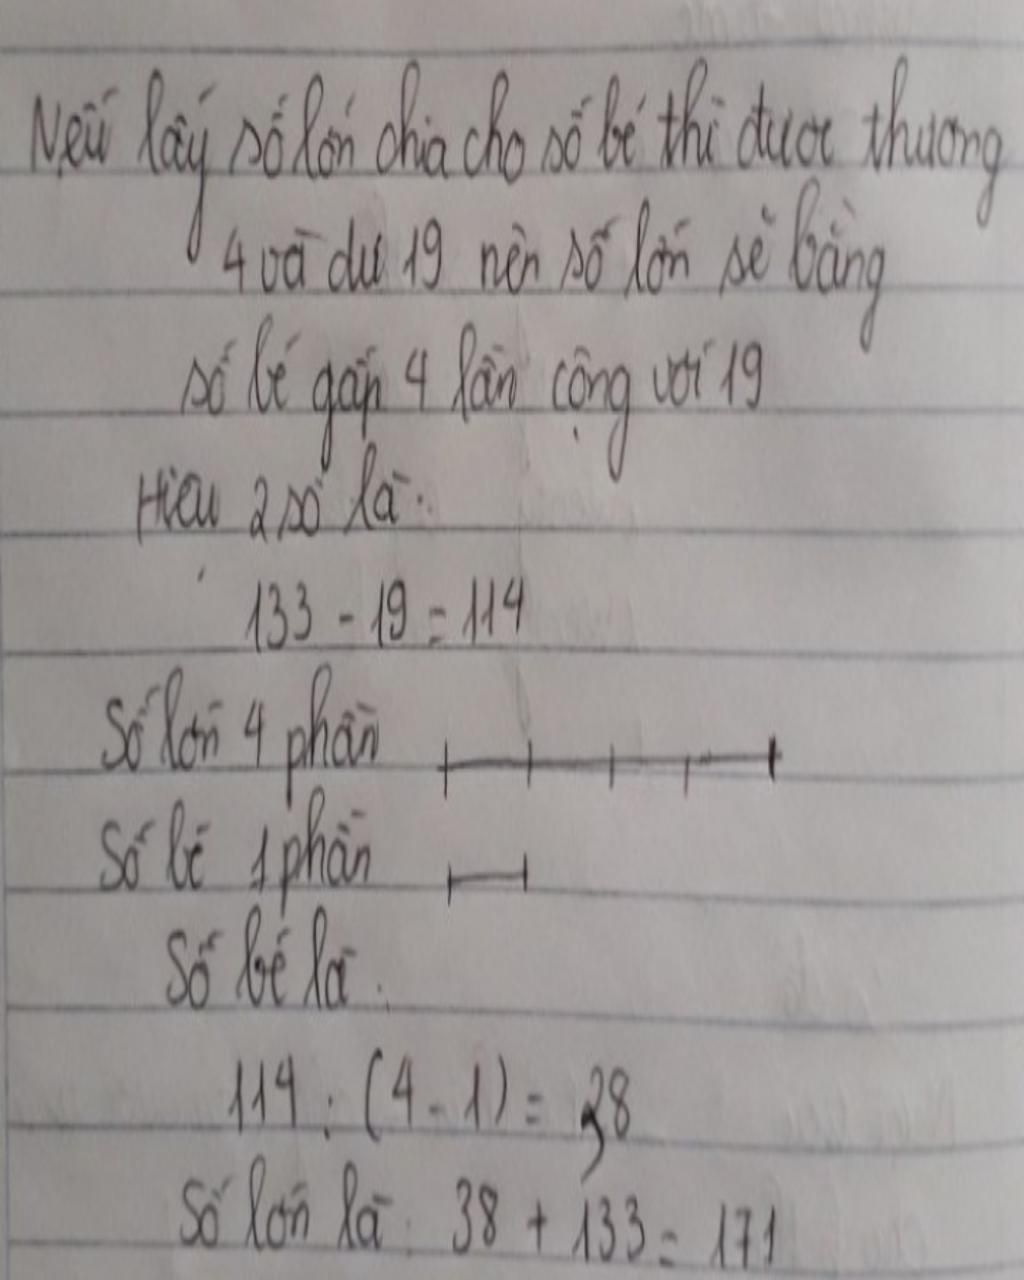 Nếu lấy số lớn chia cho số bé thì được thương
4 và dư 19 nên số lớn sẽ bằng
số bé gấp 4 lần cộng với 19
Hiệu 2 số là:
133 - 19 = 114
Số lớn 4 phần
Số bé 1 phần
Số bé là:
114 : (4 - 1) = 38
Số lớn là: 38 + 133 = 171